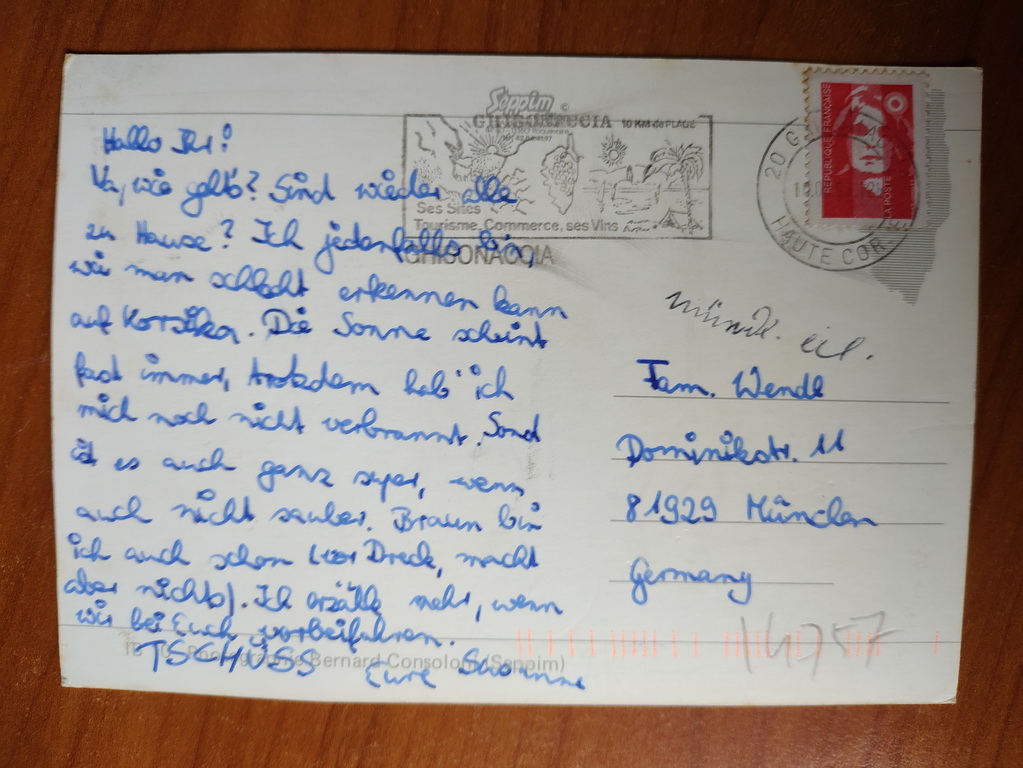 Hallo Ihr!
Na, wie geht's? Sind wieder alle
zu Hause? Ich jedenfalls bin,
wie man schlecht erkennen kann
auf Korsika. Die Sonne scheint
fast immer, trotzdem hab' ich
mich noch nicht verbrannt. Sand
ist es auch ganz super, wenn
auch nicht sauber. Braun bin
ich auch schon (vor Dreck, macht
aber nichts). Ich erzähle mehr, wenn
wir bei Euch vorbeifahren.
TSCHÜSS Eure Susanne
Photographie Bernard Consoloni (Soppim)
Soppim ©
GHISONACCIA 10 KM de PLAGE
Ses Sites
Tourisme, Commerce, ses Vins
GHISONACCIA
20 G
HAUTE COR
REPUBLIQUE FRANÇAISE
LA POSTE
Fam. Wendl
Dominikstr. 11
81929 München
Germany
14757